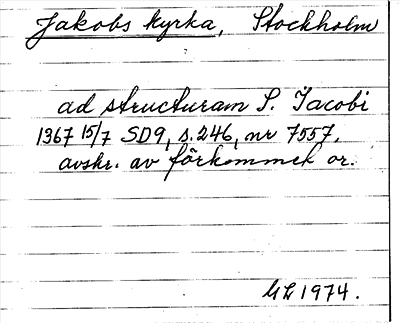 Jakobs kyrka, Stockholm
ad structuram S. Jacobi
1367 15/7 SD9, s.246, nr 7557.
avskr. av förkommet or.
ML 1974.